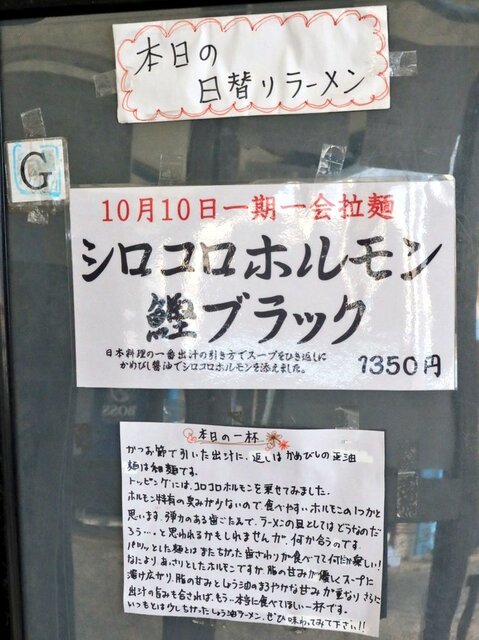 本日の
日替りラーメン
G
10月10日一期一会拉麺
シロコロホルモン
鰹ブラック
日本料理の一番出汁の引き方でスープをひき返しに
かめびし醤油でシロコロホルモンを添えました。
1350円
本日の一杯
かつお節で引いた出汁に、返しはかめびしの正油
麺は細麺です。
トッピングには、コロコロホルモンを乗せてみました。
ホルモン特有の臭みが少ないので、食べやすいホルモンの1つかと
思います。弾力のある歯ごたえで、ラーメンの具としてはどうなのだ
ろう…と思われるかもしれませんが、何か合うのです。
パリッとした麺とはまたちがった歯ざわりが食べてて何だか楽しい!
なにより、あっさりとしたホルモンですが脂の甘みが優しくスープに
溶け広がり、脂の甘みとしょう油のまろやかな甘みが重なり さらに
出汁の旨みも合されば、もう…本当に食べてほしい一杯です。
いつもとは少しちがったしょう油ラーメン、ぜひ味わってみて下さい!!
BOSS